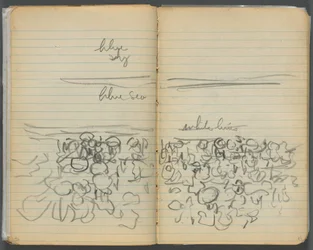 blue
sky
blue sea
white line